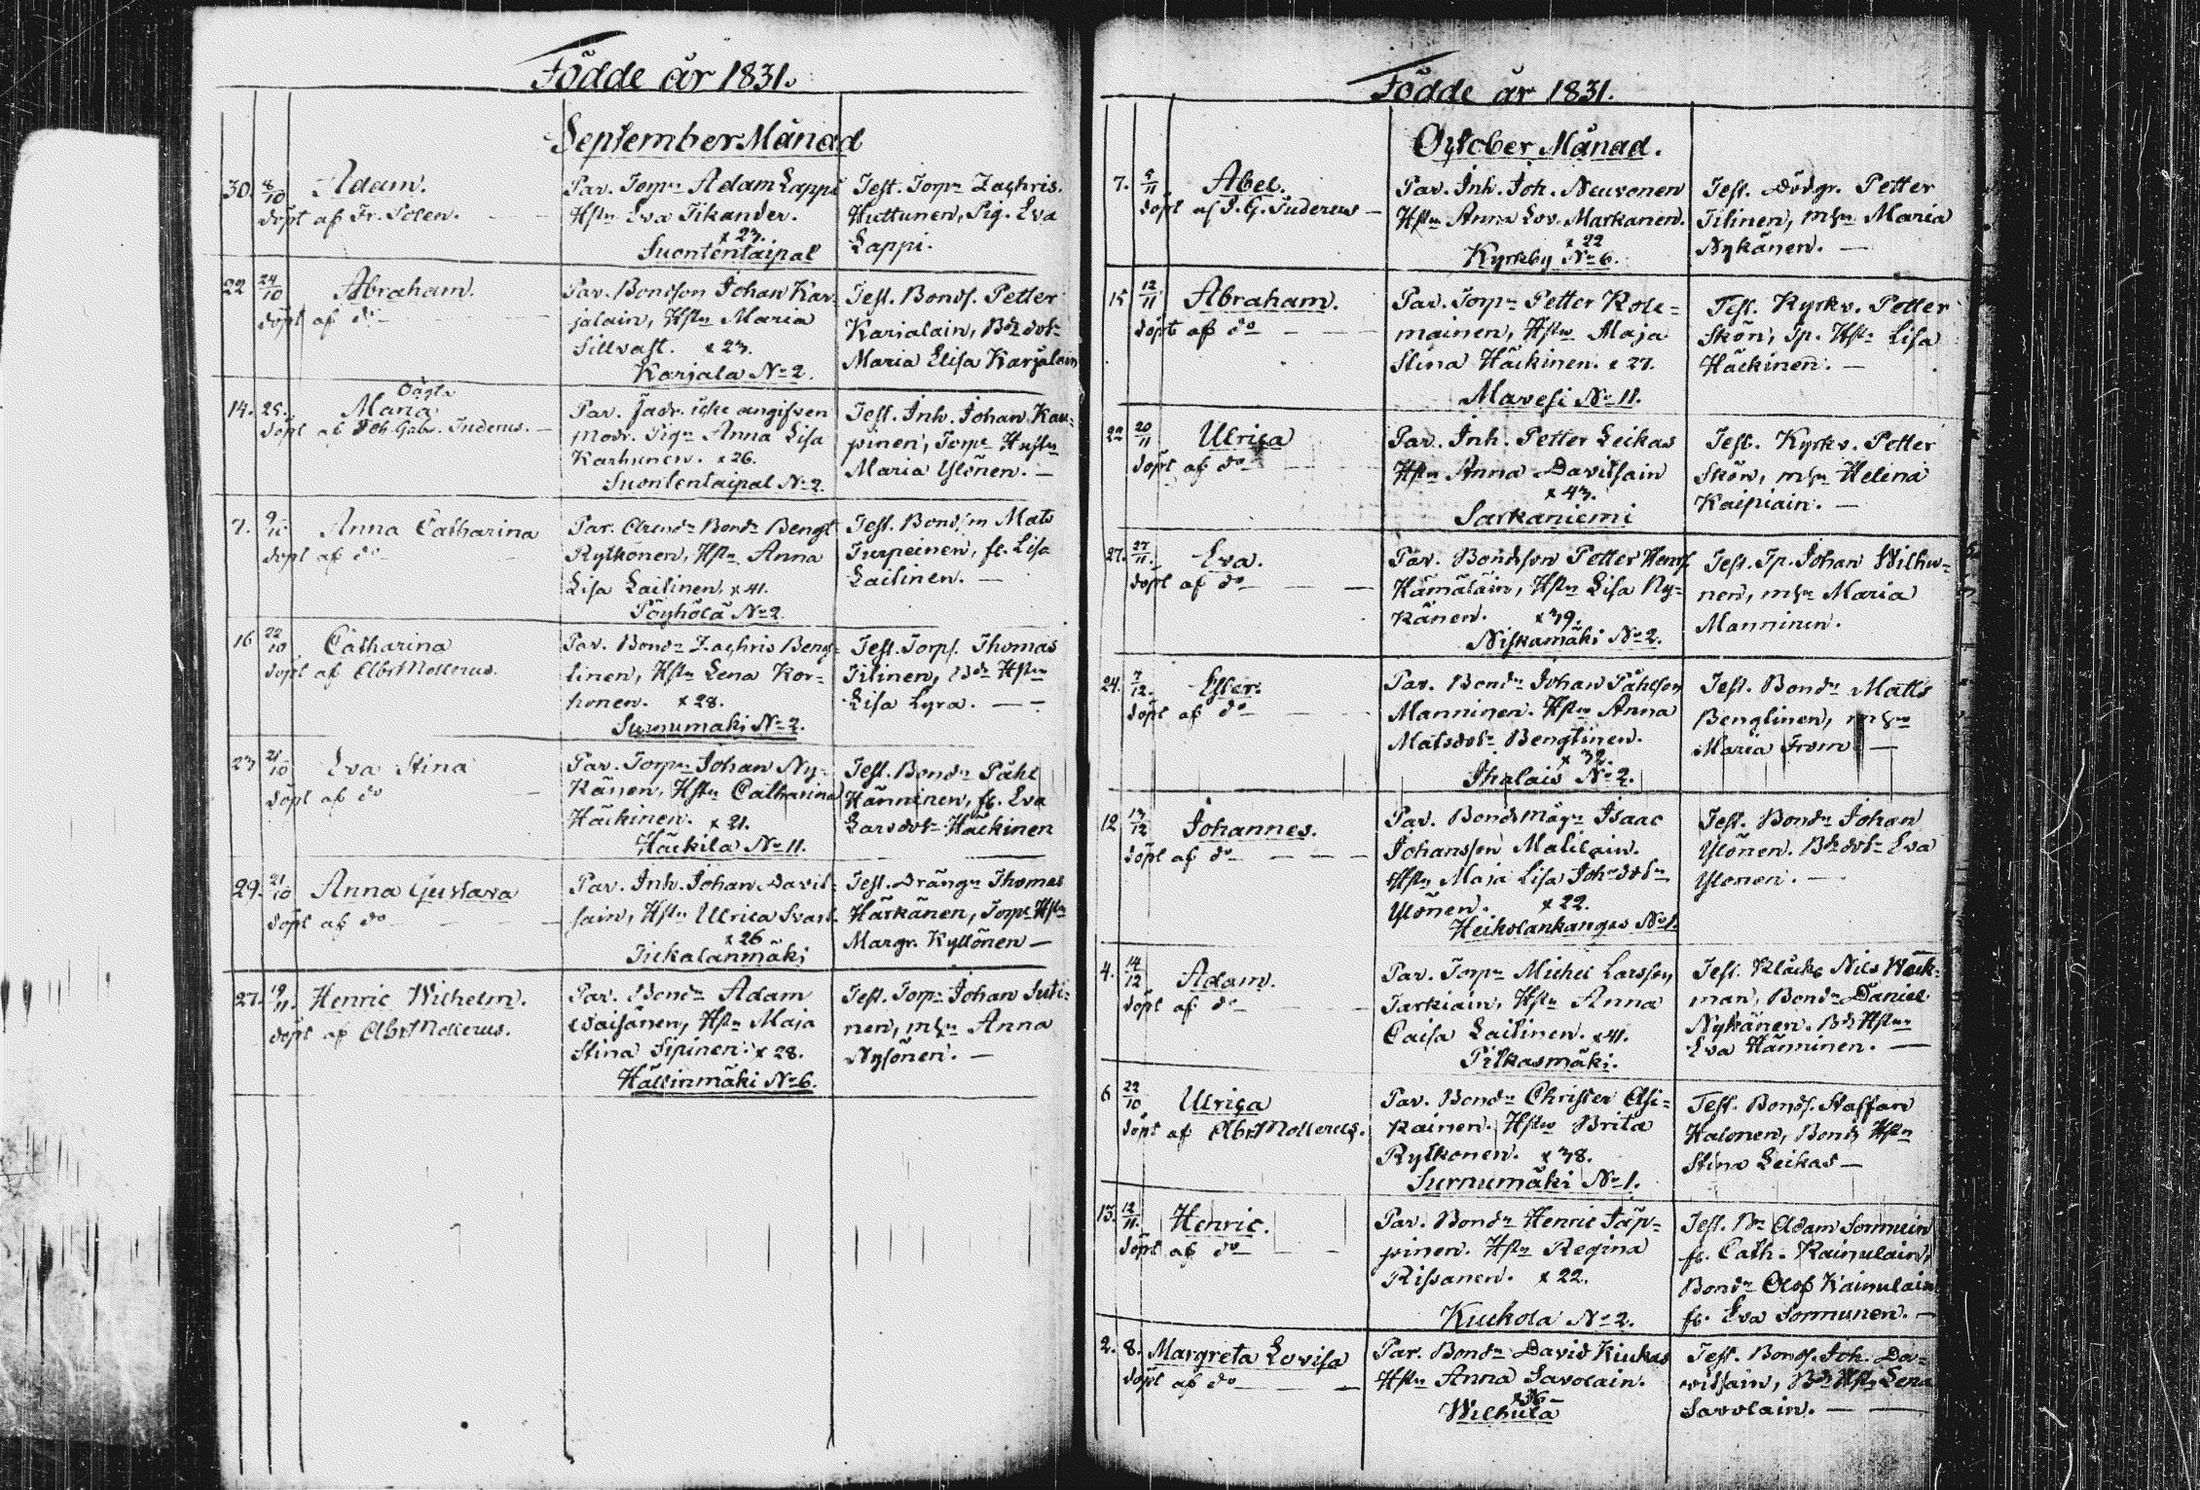 Födde år 1831.
September Månad
30. 8/10 Adam.
döpt af Fr. Polen.
Par. Torp:n Adam Lappi
H:stn Eva Tikander.
x 23.
Suontentaipal
Test. Torp:n Zachris
Huttunen, Pig. Eva
Lappi.
22 24/10 Abraham.
döpt af do
Par. Bondson Johan Kar-
jalain, H:stn Maria
Sillvast. x 23.
Karjala No 2.
Test. Bonds. Petter
Karjalain, Bd dotr
Maria Elisa Karjalain
14. 25. Oägta
Maria
döpt af Joh. Gabr. Tuderus.
Par. Fadr. icke angifven
Modr. Pig:n Anna Lisa
Karhunen. x 26.
Suontentaipal No 2.
Test. Inh. Johan Kau-
pinen, Torp: Hustn
Maria Ylönen.
7. 9/10 Anna Catharina
döpt af do
Par. Arend: Bond: Bengt
Rytkönen, H:stn Anna
Lisa Laitinen, x 41.
Pöyhölä No 2.
Test. Bondsn Mats
Turpeinen, fl. Lisa
Laitinen.
16 22/10 Catharina
döpt af Abr Mollerus.
Par. Bond: Zachris Beng-
tinen, H:stn Lena Kor-
honen. x 28.
Surnumäki No 2.
Test. Torps. Thomas
Tilinen, Bd: H:stn
Lisa Lyra.
23 21/10 Eva Stina
döpt af do
Par. Torp:n Johan Ny-
känen, H:stn Catharina
Häckinen. x 21.
Häckilä No 11.
Test. Bond:n Påhl
Hänninen, fl. Eva
Larsdotr Häckinen
29. 21/10 Anna Gustava
döpt af do
Par. Inh. Johan David-
sain, H:stn Ulrica Svart.
x 26
Tickalanmäki
Test. Dräng:n Thomas
Härkänen, Torp: H:stn
Margr. Kyllönen
27. 19/11. Henric Wilhelm.
döpt af Abr Mollerus.
Par. Bond:n Adam
Waisänen, H:stn Maja
Stina Sipinen. x 28.
Hällinmäki No 6.
Test. Torp:n Johan Suti-
nen, m h:n Anna
Nysönen.
Födde år 1831.
October Månad.
7. 9/11 Abel.
döpt af J. G. Tuderus
Par. Inh. Joh. Neuvonen
H:stn Anna Lov. Markanen.
x 22
Kyrkby No 6.
Test. Dödgr. Petter
Tilinen, m h:n Maria
Nykänen.
15 12/11 Abraham.
döpt af do
Par. Torp:n Petter Kole-
mainen, H:stn Maja
Stina Häckinen. x 27.
Mavesi No 11.
Test. Kyrkv. Petter
Skön, Tp. H:stn Lisa
Häckinen.
22 20/11 Ulrica
döpt af do
Par. Inh. Petter Leikas
H:stn Anna Davidsain
x 43.
Sarkaniemi
Test. Kyrkv. Petter
Skön, m h:n Helena
Kaipiain.
27. 27/11. Eva.
döpt af do
Par. Bondsson Petter Hens
Hämäläin, H:stn Lisa Ny-
känen. x 39.
Niskamäki No 2.
Test. Tp. Johan Wilhu-
nen, m h:n Maria
Manninen.
24. 7/12. Ester.
döpt af do
Par. Bond:n Johan Påhlson
Manninen. H:stn Anna
Matsdotr Bengtinen.
x 32.
Ihalais No 2.
Test. Bond:n Matts
Bengtinen, m h:n
Maria From
12 13/12 Johannes.
döpt af do
Par. Bondsmåg:n Isaac
Johansson Malilain.
H:stn Maja Lisa Joh:dotr
Ylönen. x 22.
Heikolankangas No 1.
Test. Bond:n Johan
Ylönen. Bd dotr Eva
Ylönen.
4. 14/12 Adam.
döpt af do
Par. Torp:n Michel Larsson
Tarkiain, H:stn Anna
Caisa Laitinen. x 41.
Pitkasmäki.
Test. Klåck: Nils Weck-
man, Bond:n Daniel
Nykänen. Bd H:stn
Eva Hänninen.
6 22/10 Ulrica
döpt af Abr Mollerus.
Par. Bond:n Christer Asi-
kainen. H:stn Brita
Rytkonen. x 38.
Surnumäki No 1.
Test. Bonds. Staffan
Halonen, Bond: H:stn
Stina Leikas
13. 12/11. Henric.
döpt af do
Par. Bond:n Henric Täp-
pinen. H:stn Regina
Rissanen. x 22.
Kuckola No 2.
Test. B:n Adam Sormuin
fl. Cath. Kainulain,
Bond:n Olof Kainulain
fl. Eva Sormunen.
2. 8. Margreta Lovisa
döpt af do
Par. Bond:n David Kiukas
H:stn Anna Savolain.
x 36
Wilhula
Test. Bonds. Joh. Da-
vidsain, Bd H:stn Lena
Savolain.